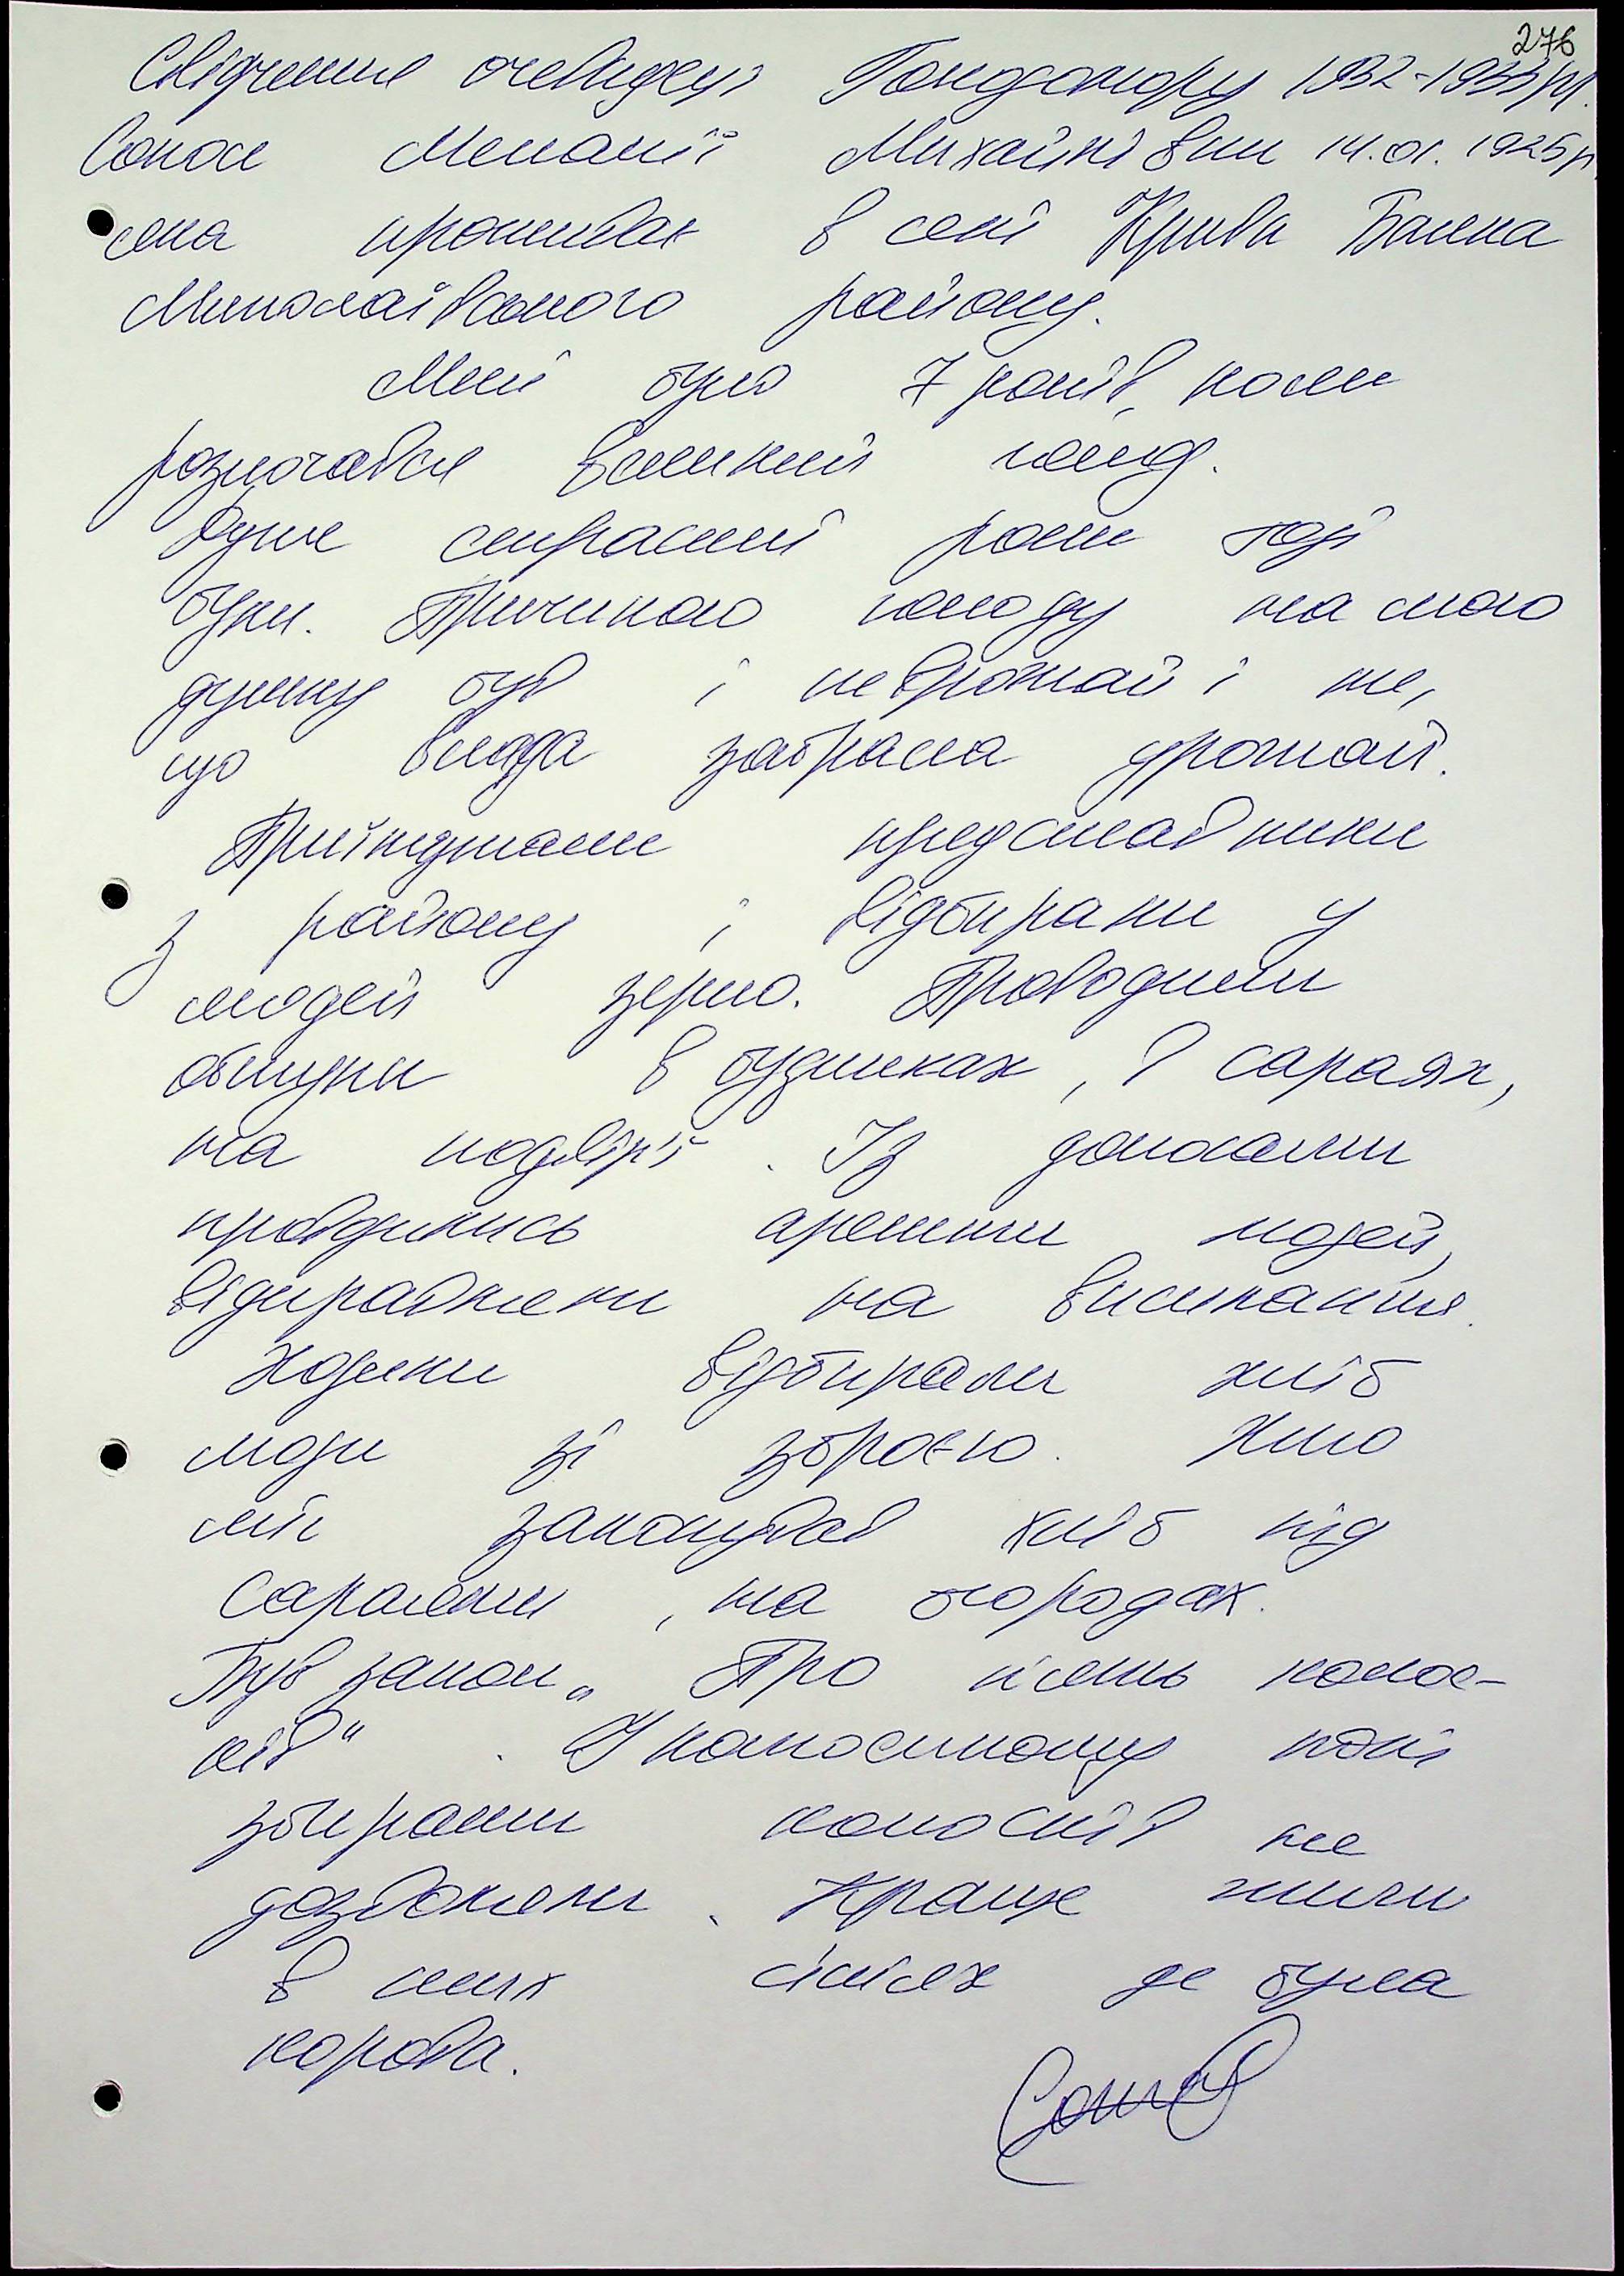 276
Свідчення очевидця Голодомору 1932-1933 рр.
Меланії Михайлівни 14.01.1925 р.
яка проживає в селі Крива Балка
Миколаївського району.
Мені було 7 років, коли
розпочався великий голод.
Дуже страшні роки тоді
були. Причиною голоду на мою
думку був і неврожай і те,
що влада забрала урожай.
Приїжджали представники
з району і відбирали у
людей зерно. Проводили
обшуки в будинках, в сараях,
на подвір'ї. Із доносами
проводились арешти людей,
відправляли на висилання.
Ходили відбирали хліб
люди зі зброєю. Хто
міг закопував хліб під
сараями, на огородах.
Був закон „Про п'ять колос-
ків". У колгоспному полі
збирати колосків не
дозволяли. Краще жили
в тих сім'ях де була
корова.